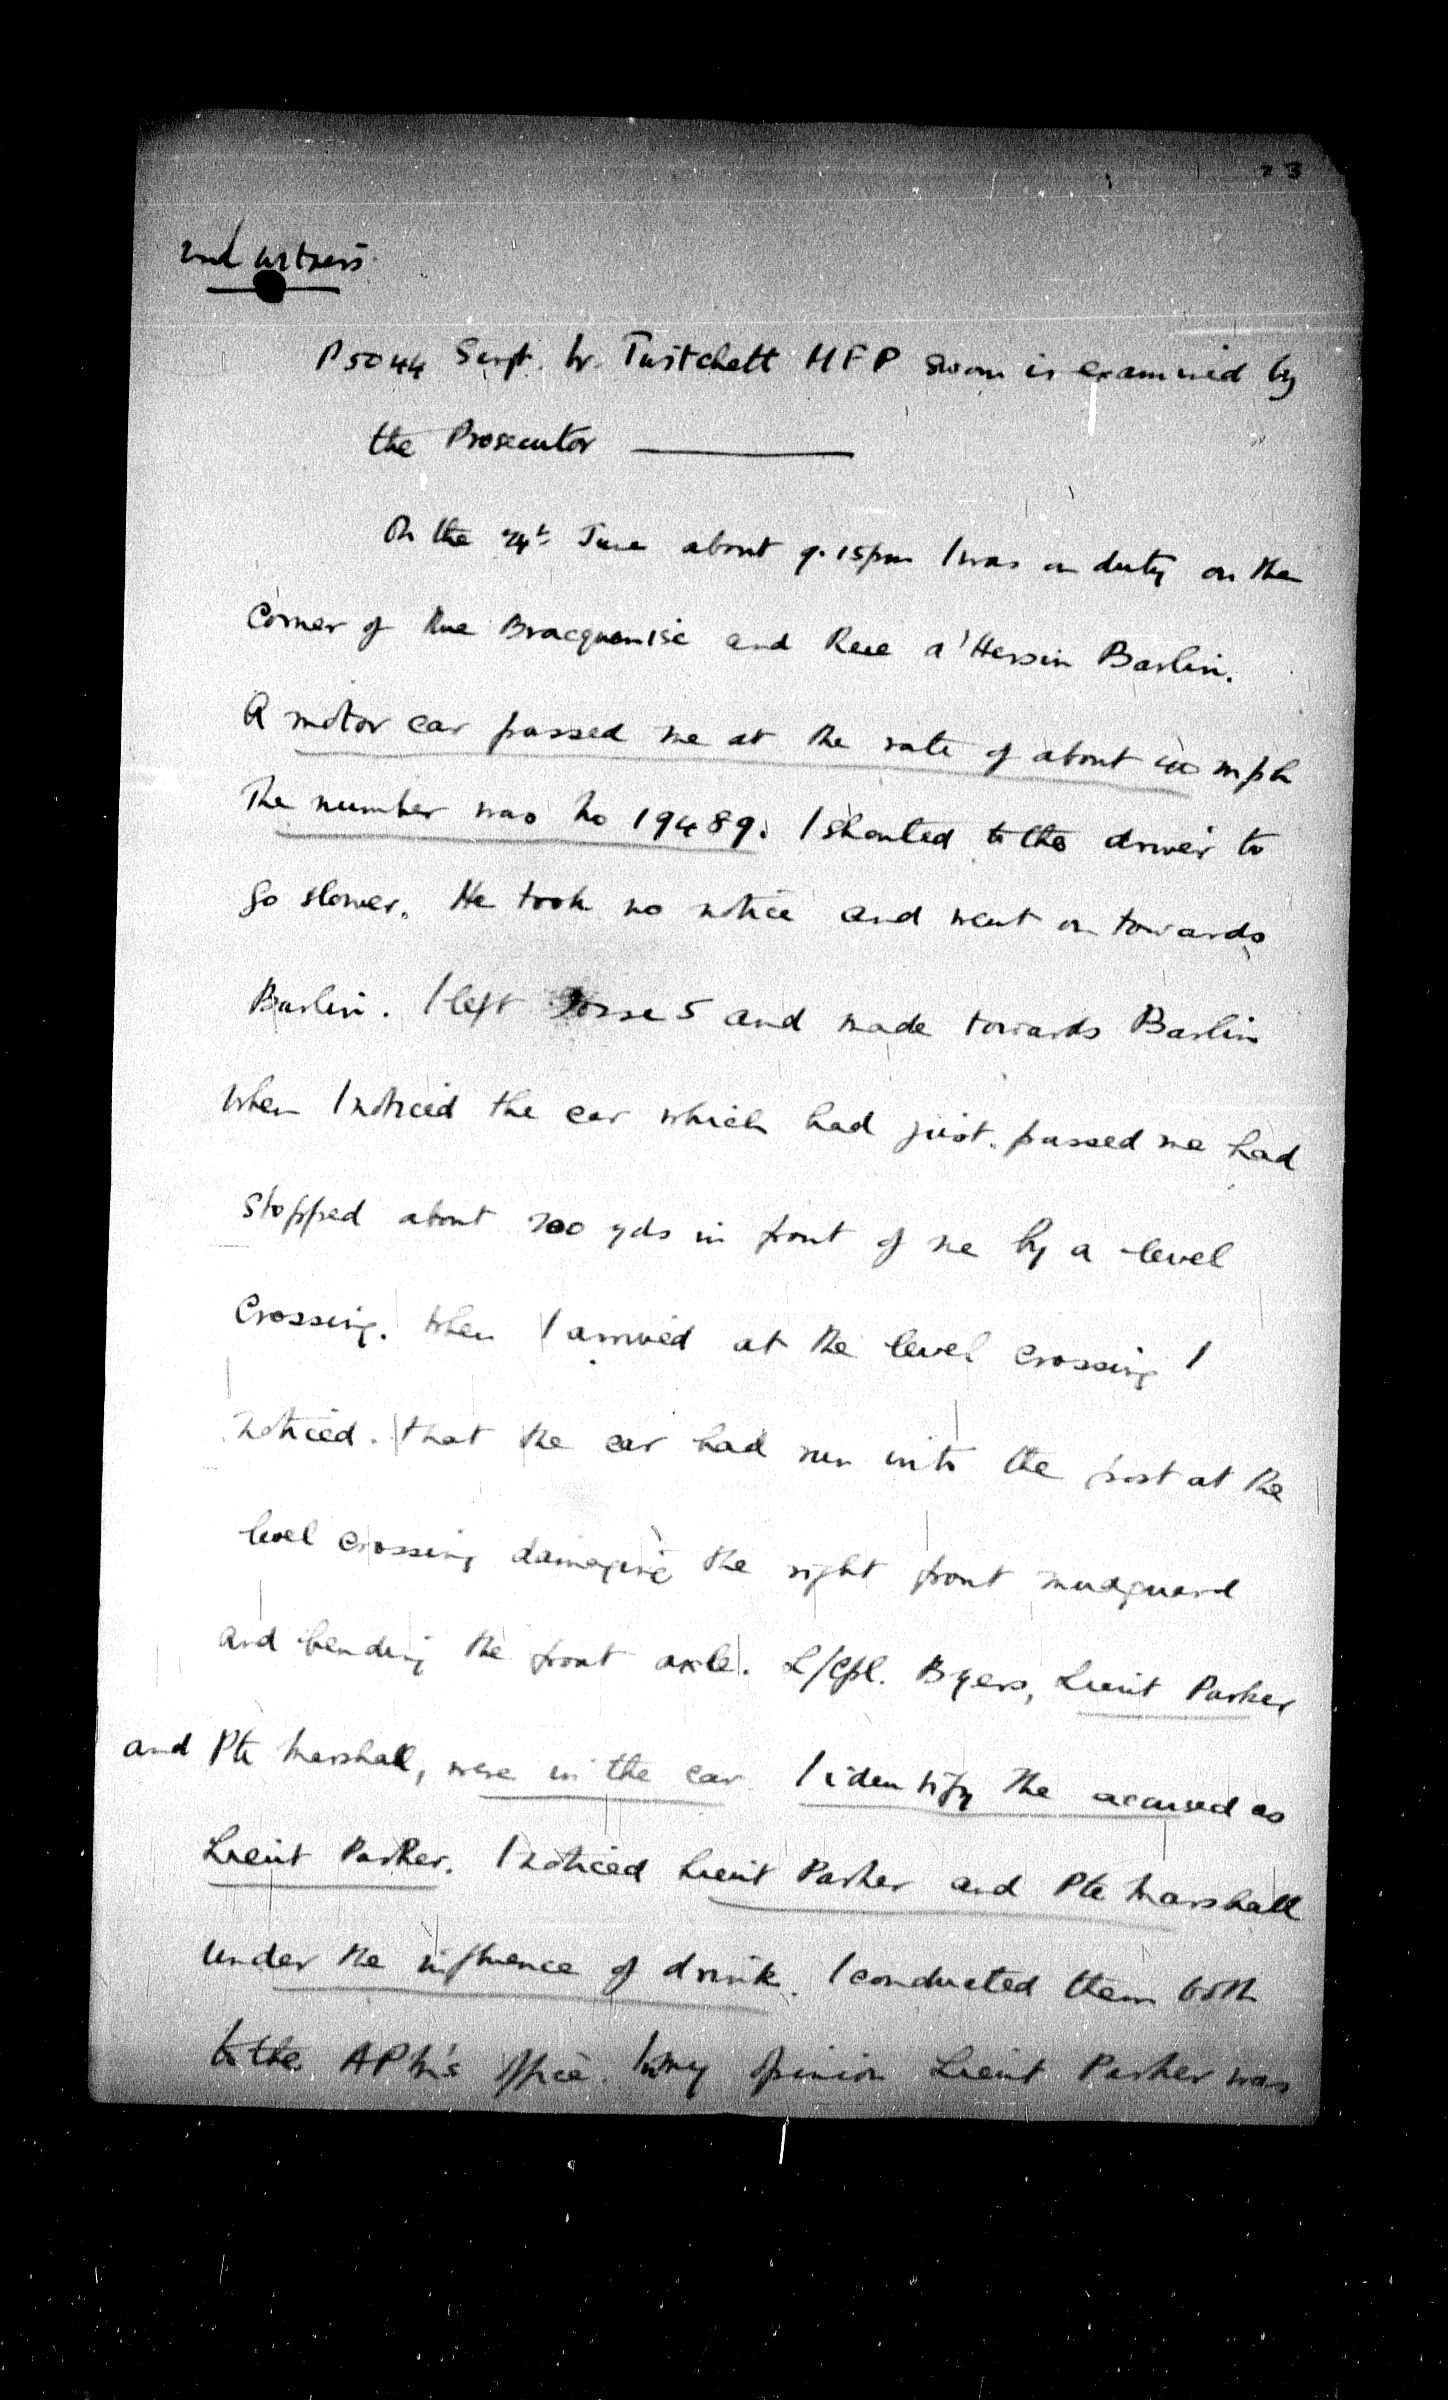 23
2nd Witness
P5044 Sergt. W. Twitchett MFP sworn is examined by
the Prosecutor
On the 24th June about 9.15pm I was on duty on the
Corner of Rue Bracquemise and Rue d'Hersin Barlin.
A motor car passed me at the rate of about 40 mph
The number was No 19489. I shouted to the driver to
go slower. He took no notice and went on towards
Barlin. I left Fosse 5 and made towards Barlin
When I noticed the car which had just passed me had
stopped about 200 yds in front of me by a level
Crossing. When I arrived at the level crossing I
noticed that the car had run into the post at the
level crossing damaging the right front mudguard
and bending the front axle. L/Cpl. Byers, Lieut Parker
and Pte Marshall, were in the car. I identify the accused as
Lieut Parker. I noticed Lieut Parker and Pte Marshall
under the influence of drink. I conducted them both
to the APM's office. In my opinion Lieut Parker was